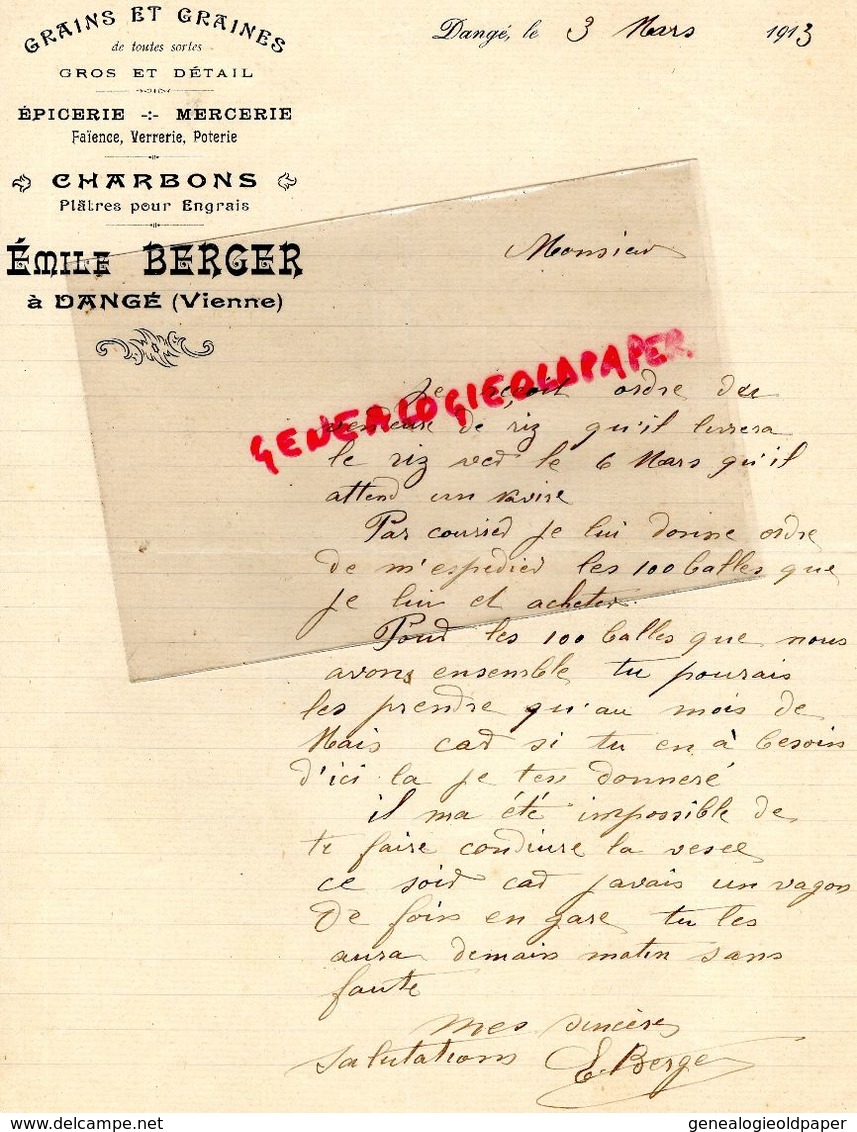 GRAINS ET GRAINES
de toutes sortes
GROS ET DÉTAIL
ÉPICERIE -:- MERCERIE
Faïence, Verrerie, Poterie
CHARBONS
Plâtres pour Engrais
ÉMILE BERGER
à DANGÉ (Vienne)
Dangé, le 3 Mars 1913
Monsieur
GENEALOGIEOLDPAPER.
Je reçoit ordre de
vendeur de riz qu'il livrera
le riz ver le 6 Mars qu'il
attend un navire
Par courrier je lui donne ordre
de m'espedier les 100 balles que
je lui et acheter.
Pour les 100 balles que nous
avons ensemble tu pourais
les prendre qu'au mois de
Mais car si tu en à besoin
d'ici la je ten donneré
il ma été impossible de
te faire conduire la vesce
ce soir car javais un vagon
de foin en gare tu les
aura demain matin sans
faute
Mes sincères
salutations E. Berger
delcampe.net
genealogieoldpaper